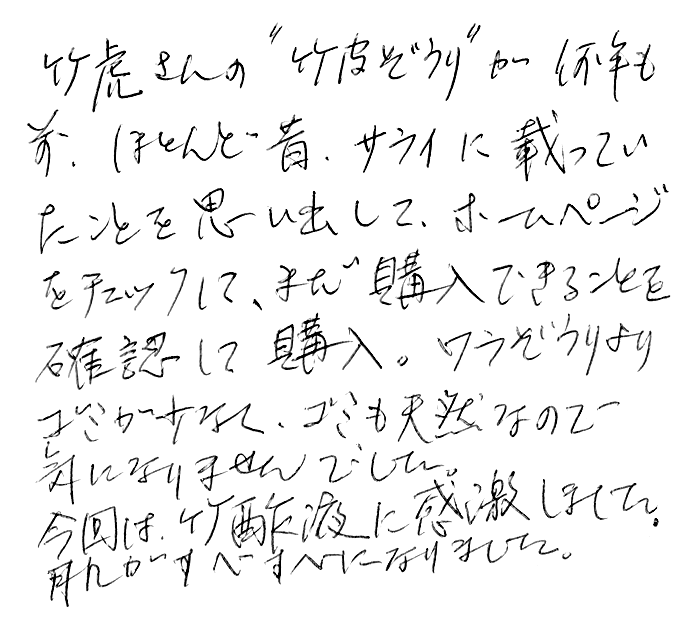 竹虎さんの"竹皮ぞうり"が何年も
前、ほとんど昔、サライに載ってい
たことを思い出して、ホームページ
をチェックして、まだ購入できることを
確認して購入。ワラぞうりより
ゴミが少なく、ゴミも天然なので
気になりませんでした。
今回は、竹酢液に感激しました。
肌がすべすべになりました。